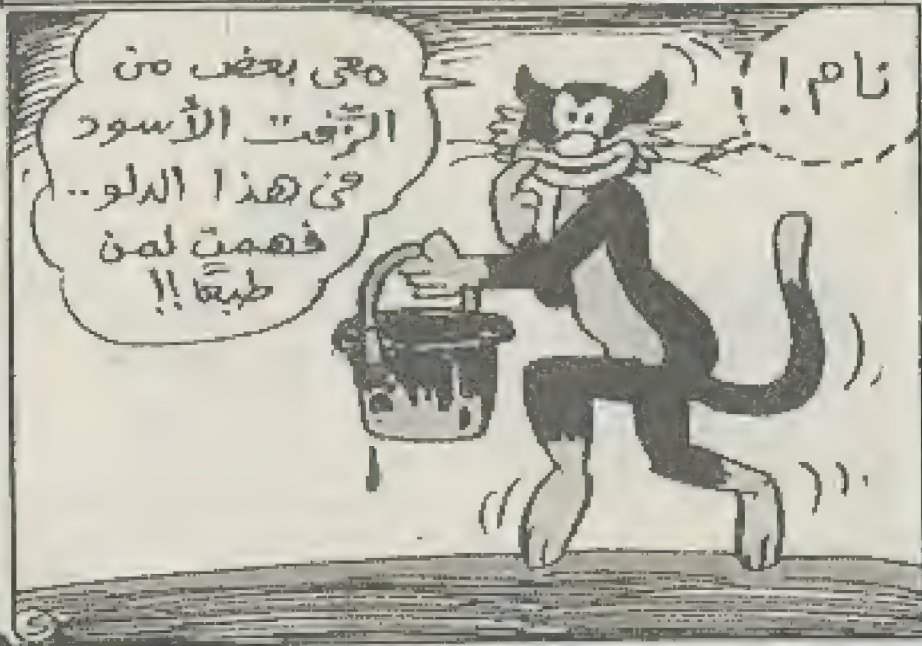 نام!
معى بعض من
الزّفت الأسود
فى هذا الدلو..
فهمتِ لمن
طبعًا!!